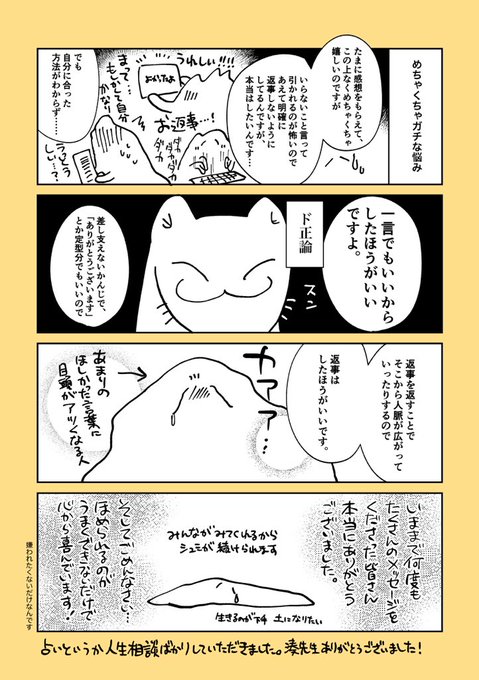 めちゃくちゃガチな悩み
たまに感想をもらえて、
この上なくめちゃくちゃ
嬉しいのですが
いらないこと言って
引かれるのが怖いので
あえて明確に
返事しないように
してるんですが、
本当はしたいんです…
うれしい!!!
よかったよ
まって…
もしかして自分
かなり
お返事…!
ダカ
ダカ
ダカ
ダカ
うっとう
しい…?
でも
自分に合った
方法がわからず……
一言でもいいから
したほうがいい
ですよ。
ド正論
スン
差し支えないかんじで、
「ありがとうございます」
とか定型分でもいいので
返事を返すことで
そこから人脈が広がって
いったりするので
返事は
したほうがいいです。
カアアア…
あまりの
ほしかった言葉に
目頭がアツくなる人
いままで何度も
たくさんのメッセージを
くださった皆さん
本当にありがとう
ございました。
みんながみてくれるから
シュミが続けられます
生きるのが下手
土になりたい
そしてごめんなさい…
ほめられるのが
うまくできないだけで
心から喜んでいます!
嫌われたくないだけなんです
占いというか人生相談ばかりしていただきました。湊先生ありがとうございました!